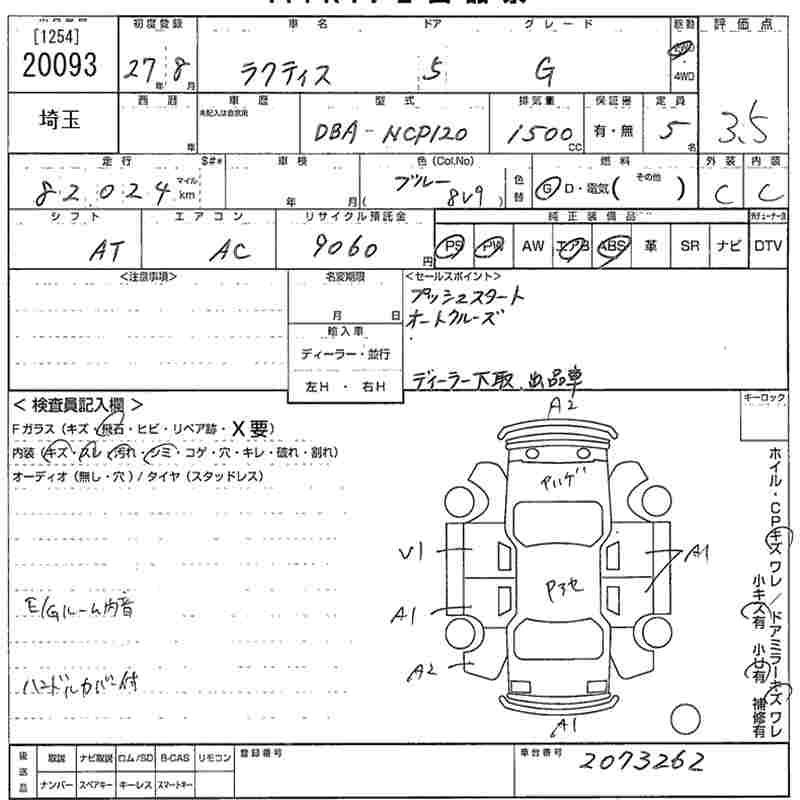 [1254]
20093
初度登録 車名 ドア グレード 駆動 評価点
27年 8月 ラクティス 5 G 2WD 4WD 3.5
埼玉
西暦 車歴 型式 排気量 保証書 定員
年 未記入は自家用 DBA-NCP120 1500cc 有・無 5名
走行 $#* 車検 色(Col,No) 色替 燃料 外装 内装
82,024 マイル km 年 月 ブルー ( 8V9 ) G D・電気( その他 ) C C
シフト エアコン リサイクル預託金 純正装備品
AT AC 9060円 PS PW AW エアB ABS 革 SR ナビ DTV
<注意事項> 名変期限 <セールスポイント>
月 日 プッシュスタート
輸入車 オートクルーズ
ディーラー・並行
左H ・ 右H ディーラー下取 出品車
キーロック
<検査員記入欄>
Fガラス(キズ・飛石・ヒビ・リペア跡・X要)
内装(キズ・スレ・汚れ・シミ・コゲ・穴・キレ・破れ・割れ)
オーディオ(無し・穴)/タイヤ(スタッドレス)
A2
V1 A1
A1
A2
A1
E/Gルーム内音
ハンドルカバー付
ホイル・CPキズ ワレ/ドアミラーキズ ワレ
小キズ有 小凹有 補修有
後送品 取説 ナビ取説 ロム/SD B-CAS リモコン 登録番号 車台番号
ナンバー スペアキー キーレス スマートキー 2073262